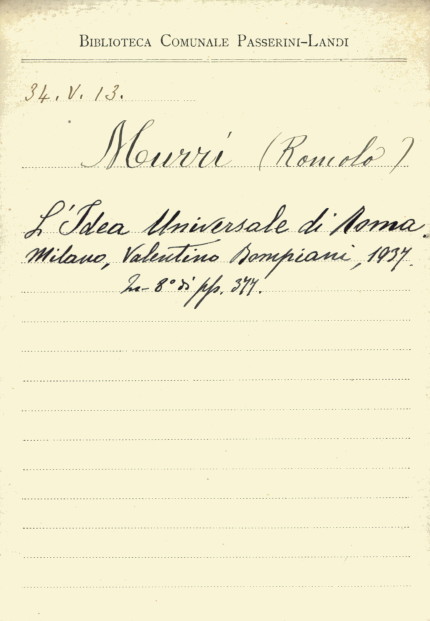 BIBLIOTECA COMUNALE PASSERINI-LANDI
34. V. 13.
Murri (Romolo)
L'Idea Universale di Roma.
Milano, Valentino Bompiani, 1937.
In-8° di pp. 377.